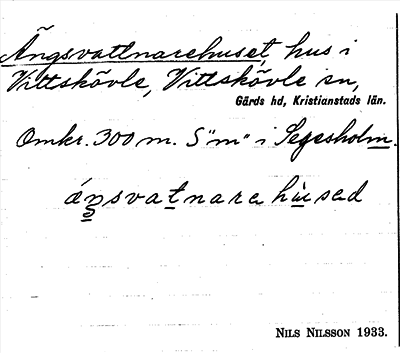 Ängsvattnarehuset, hus i
Vittskövle, Vittskövle sn,
Gärds hd, Kristianstads län.
Omkr. 300 m. S "m" i Segesholm.
áŋsvatnarehùsad
NILS NILSSON 1933.